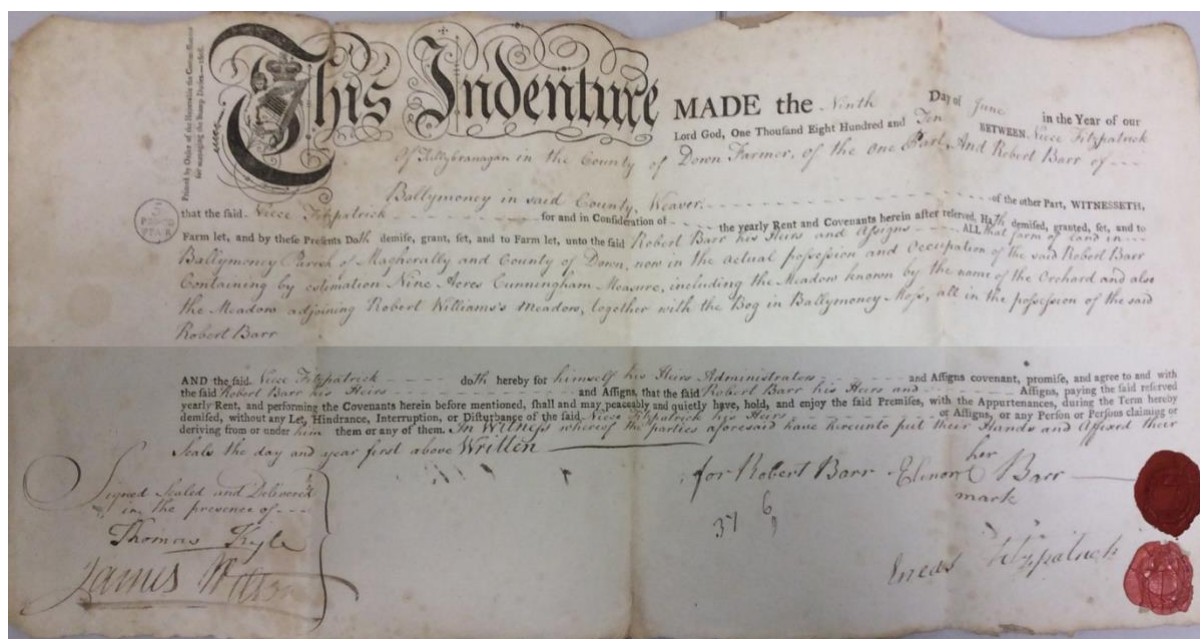 Printed by Order of the Honorable the Commissioners
for managing the Stamp Duties
This Indenture MADE the Ninth Day of June in the Year of our
Lord God, One Thouſand Eight Hundred and Ten BETWEEN Niece Fitzpatrick
Of Tullybranagan in the County of Down Farmer, of the one Part, And Robert Barr of
Ballymoney in said County, Weaver. of the other Part, WITNESSETH,
that the ſaid. Niece Fitzpatrick for and in Conſideration of the yearly Rent and Covenants herein after reſerved, Hath demiſed, granted, ſet, and to
Farm let, and by theſe Preſents Doth demiſe, grant, ſet, and to Farm let, unto the ſaid Robert Barr his Heirs and Aſsigns ALL that farm of land in
Ballymoney Parish of Magherally and County of Down, now in the actual poſseſsion and Occupation of the said Robert Barr
Containing by estimation Nine Acres Cunningham Measure, including the Meadow known by the name of the Orchard and also
the Meadow adjoining Robert Williams's meadow, together with the Bog in Ballymoney Moſs, all in the poſseſsion of the said
Robert Barr
AND the ſaid. Niece Fitzpatrick doth hereby for himself his Heirs Administrators and Aſſigns covenant, promiſe, and agree to and with
the ſaid Robert Barr his Heirs and Aſſigns, that the ſaid Robert Barr his Heirs and Aſſigns, paying the ſaid reſerved
yearly Rent, and performing the Covenants herein before mentioned, ſhall and may peaceably and quietly have, hold, and enjoy the ſaid Premiſes, with the Appurtenances, during the Term hereby
demiſed, without any Let, Hindrance, Interruption, or Diſturbance of the ſaid. Niece Fitzpatrick his Heirs or Aſſigns, or any Perſon or Perſons claiming or
deriving from or under him them or any of them. In Witneſs whereof the parties aforesaid have hereunto put their Hands and Affixed their
Seals the day and year first above Written
Signed Sealed and Delivered
in the presence of
Thomas Kyle
James
for Robert Barr Elinor her Barr
mark
37 6
Eneas Fitzpatrick